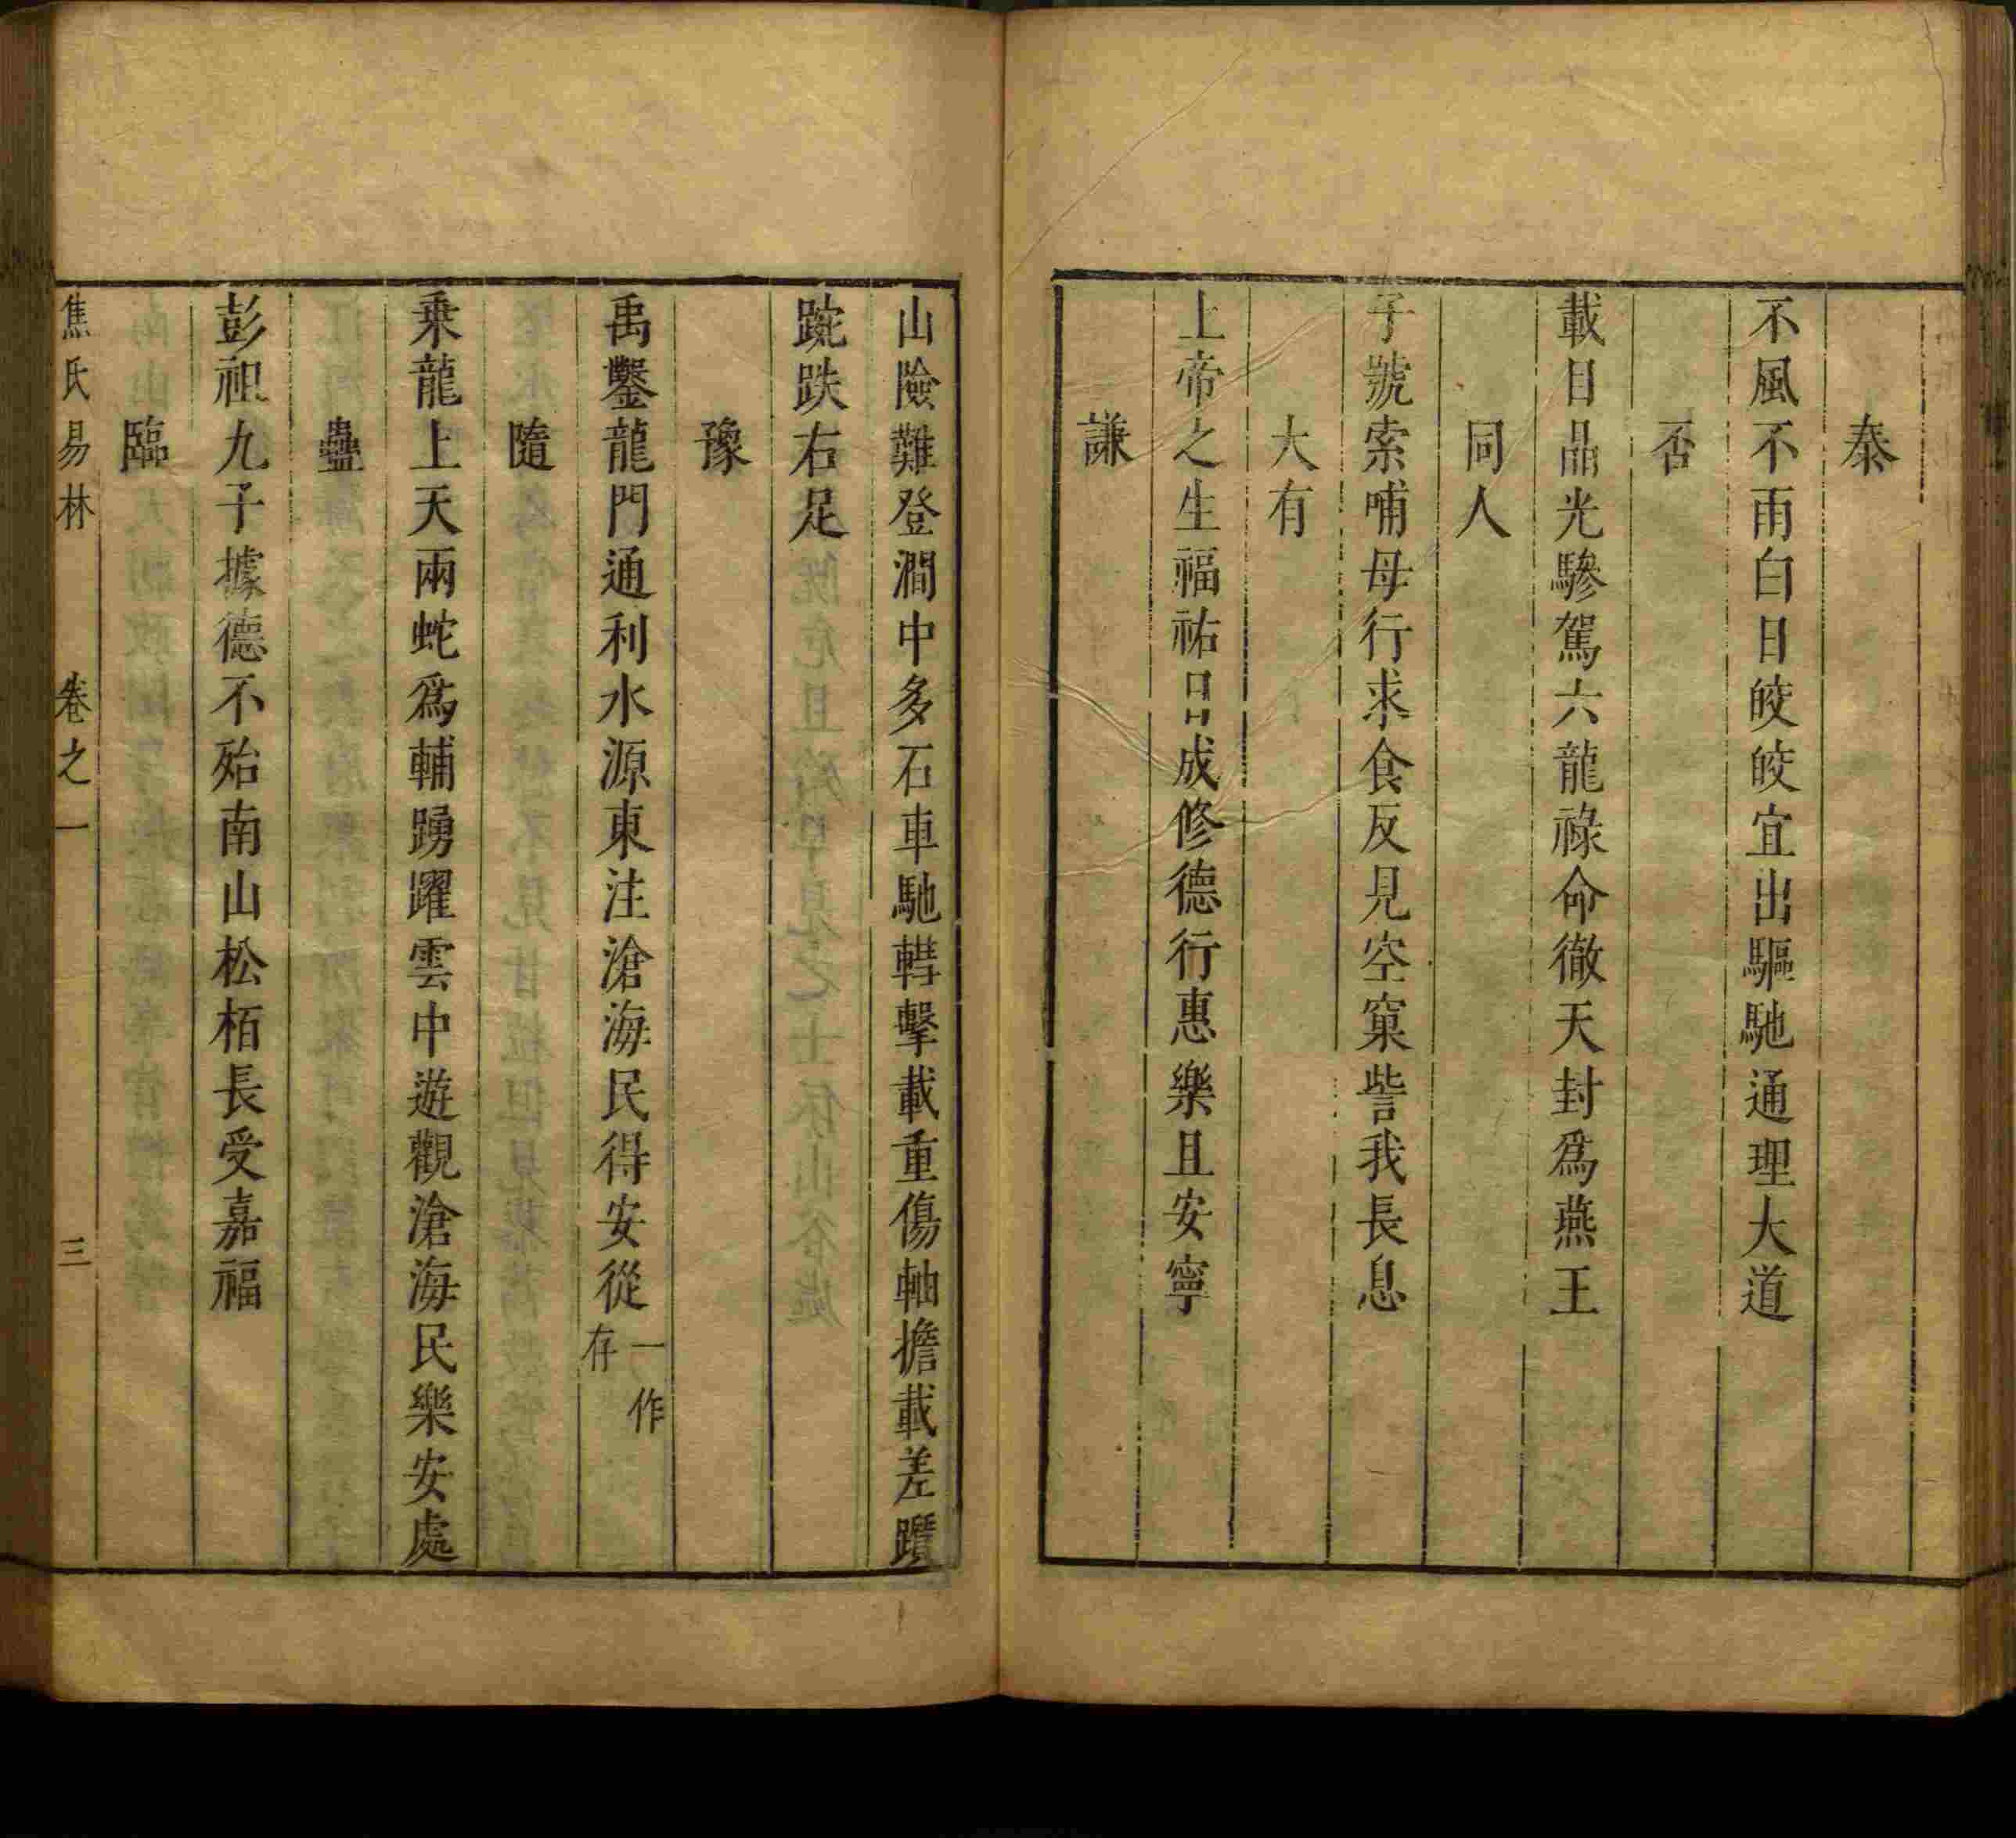 泰
不風不雨白日皎皎宜出驅馳通理大道
否
載日晶光驂駕六龍祿命徹天封爲燕王
同人
子號索哺母行求食反見空窠訾我長息
大有
上帝之生福祐日成修德行惠樂且安寧
謙
山險難登澗中多石車馳轊擊載重傷軸擔載差躓
踠跌右足
豫
禹鑿龍門通利水源東注滄海民得安從一作存
隨
乘龍上天兩蛇爲輔踴躍雲中遊觀滄海民樂安處
蠱
彭祖九子據德不殆南山松栢長受嘉福
臨
焦氏易林 卷之一 三